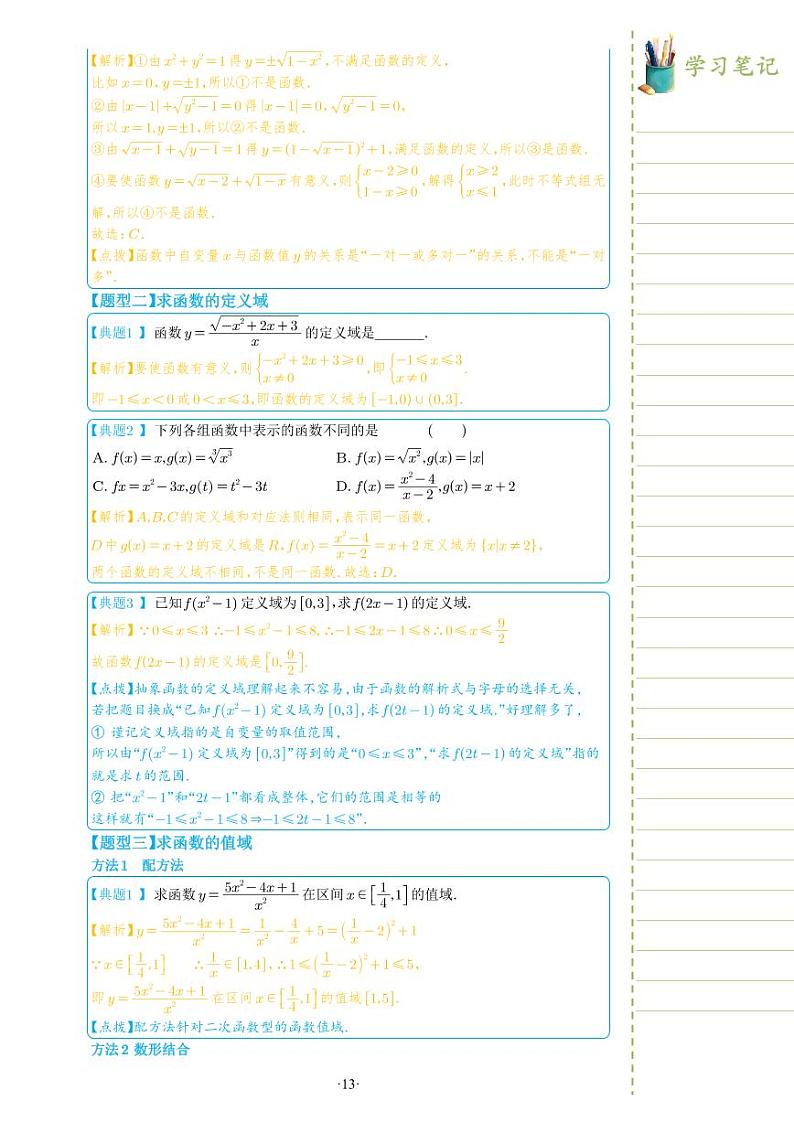 学习笔记
【解析】①由 x²+y²=1 得 y=±√(1-x²),不满足函数的定义,
比如 x=0, y=±1,所以①不是函数.
②由 |x-1|+√(y²-1)=0 得 |x-1|=0, √(y²-1)=0,
所以 x=1,y=±1,所以②不是函数.
③由 √(x-1)+√(y-1)=1 得 y=(1-√(x-1))²+1,满足函数的定义,所以③是函数.
④要使函数 y=√(x-2)+√(1-x) 有意义,则 {x-2⩾0, 1-x⩾0 ,解得 {x⩾2, x⩽1 ,此时不等式组无
解,所以④不是函数.
故选: C.
【点拨】函数中自变量 x 与函数值 y 的关系是“一对一或多对一”的关系,不能是“一对
多”.
【题型二】求函数的定义域
【典题1 】 函数 y=√(-x²+2x+3)/x 的定义域是______.
【解析】要使函数有意义,则 {-x²+2x+3⩾0, x≠0 ,即 {-1⩽x⩽3, x≠0 .
即 -1⩽x<0 或 0<x⩽3,即函数的定义域为 [-1,0)∪(0,3].
【典题2 】 下列各组函数中表示的函数不同的是 ( )
A. f(x)=x,g(x)=∛(x³) B. f(x)=√(x²),g(x)=|x|
C. fx=x²-3x,g(t)=t²-3t D. f(x)=(x²-4)/(x-2),g(x)=x+2
【解析】A,B,C的定义域和对应法则相同,表示同一函数,
D中 g(x)=x+2 的定义域是 R, f(x)=(x²-4)/(x-2)=x+2 定义域为 {x|x≠2},
两个函数的定义域不相同,不是同一函数.故选: D.
【典题3 】 已知f(x²-1) 定义域为 [0,3],求f(2x-1) 的定义域.
【解析】∵0⩽x⩽3 ∴-1⩽x²-1⩽8, ∴-1⩽2x-1⩽8∴0⩽x⩽9/2
故函数f(2x-1) 的定义域是[0,9/2].
【点拨】抽象函数的定义域理解起来不容易,由于函数的解析式与字母的选择无关,
若把题目换成“已知f(x²-1) 定义域为 [0,3],求f(2t-1) 的定义域.”好理解多了,
① 谨记定义域指的是自变量的取值范围,
所以由“f(x²-1) 定义域为 [0,3]”得到的是“0⩽x⩽3”,“求f(2t-1) 的定义域”指的
就是求 t 的范围.
② 把“x²-1”和“2t-1”都看成整体,它们的范围是相等的
这样就有“-1⩽x²-1⩽8⇒-1⩽2t-1⩽8”.
【题型三】求函数的值域
方法1 配方法
【典题1 】 求函数 y=(5x²-4x+1)/x² 在区间 x∈[1/4,1]的值域.
【解析】y=(5x²-4x+1)/x²=1/x²-4/x+5=(1/x-2)²+1
∵x∈[1/4,1] ∴1/x∈[1,4], ∴1⩽(1/x-2)²+1⩽5,
即 y=(5x²-4x+1)/x² 在区间 x∈[1/4,1]的值域 [1,5].
【点拨】配方法针对二次函数型的函数值域.
方法2 数形结合
·13·